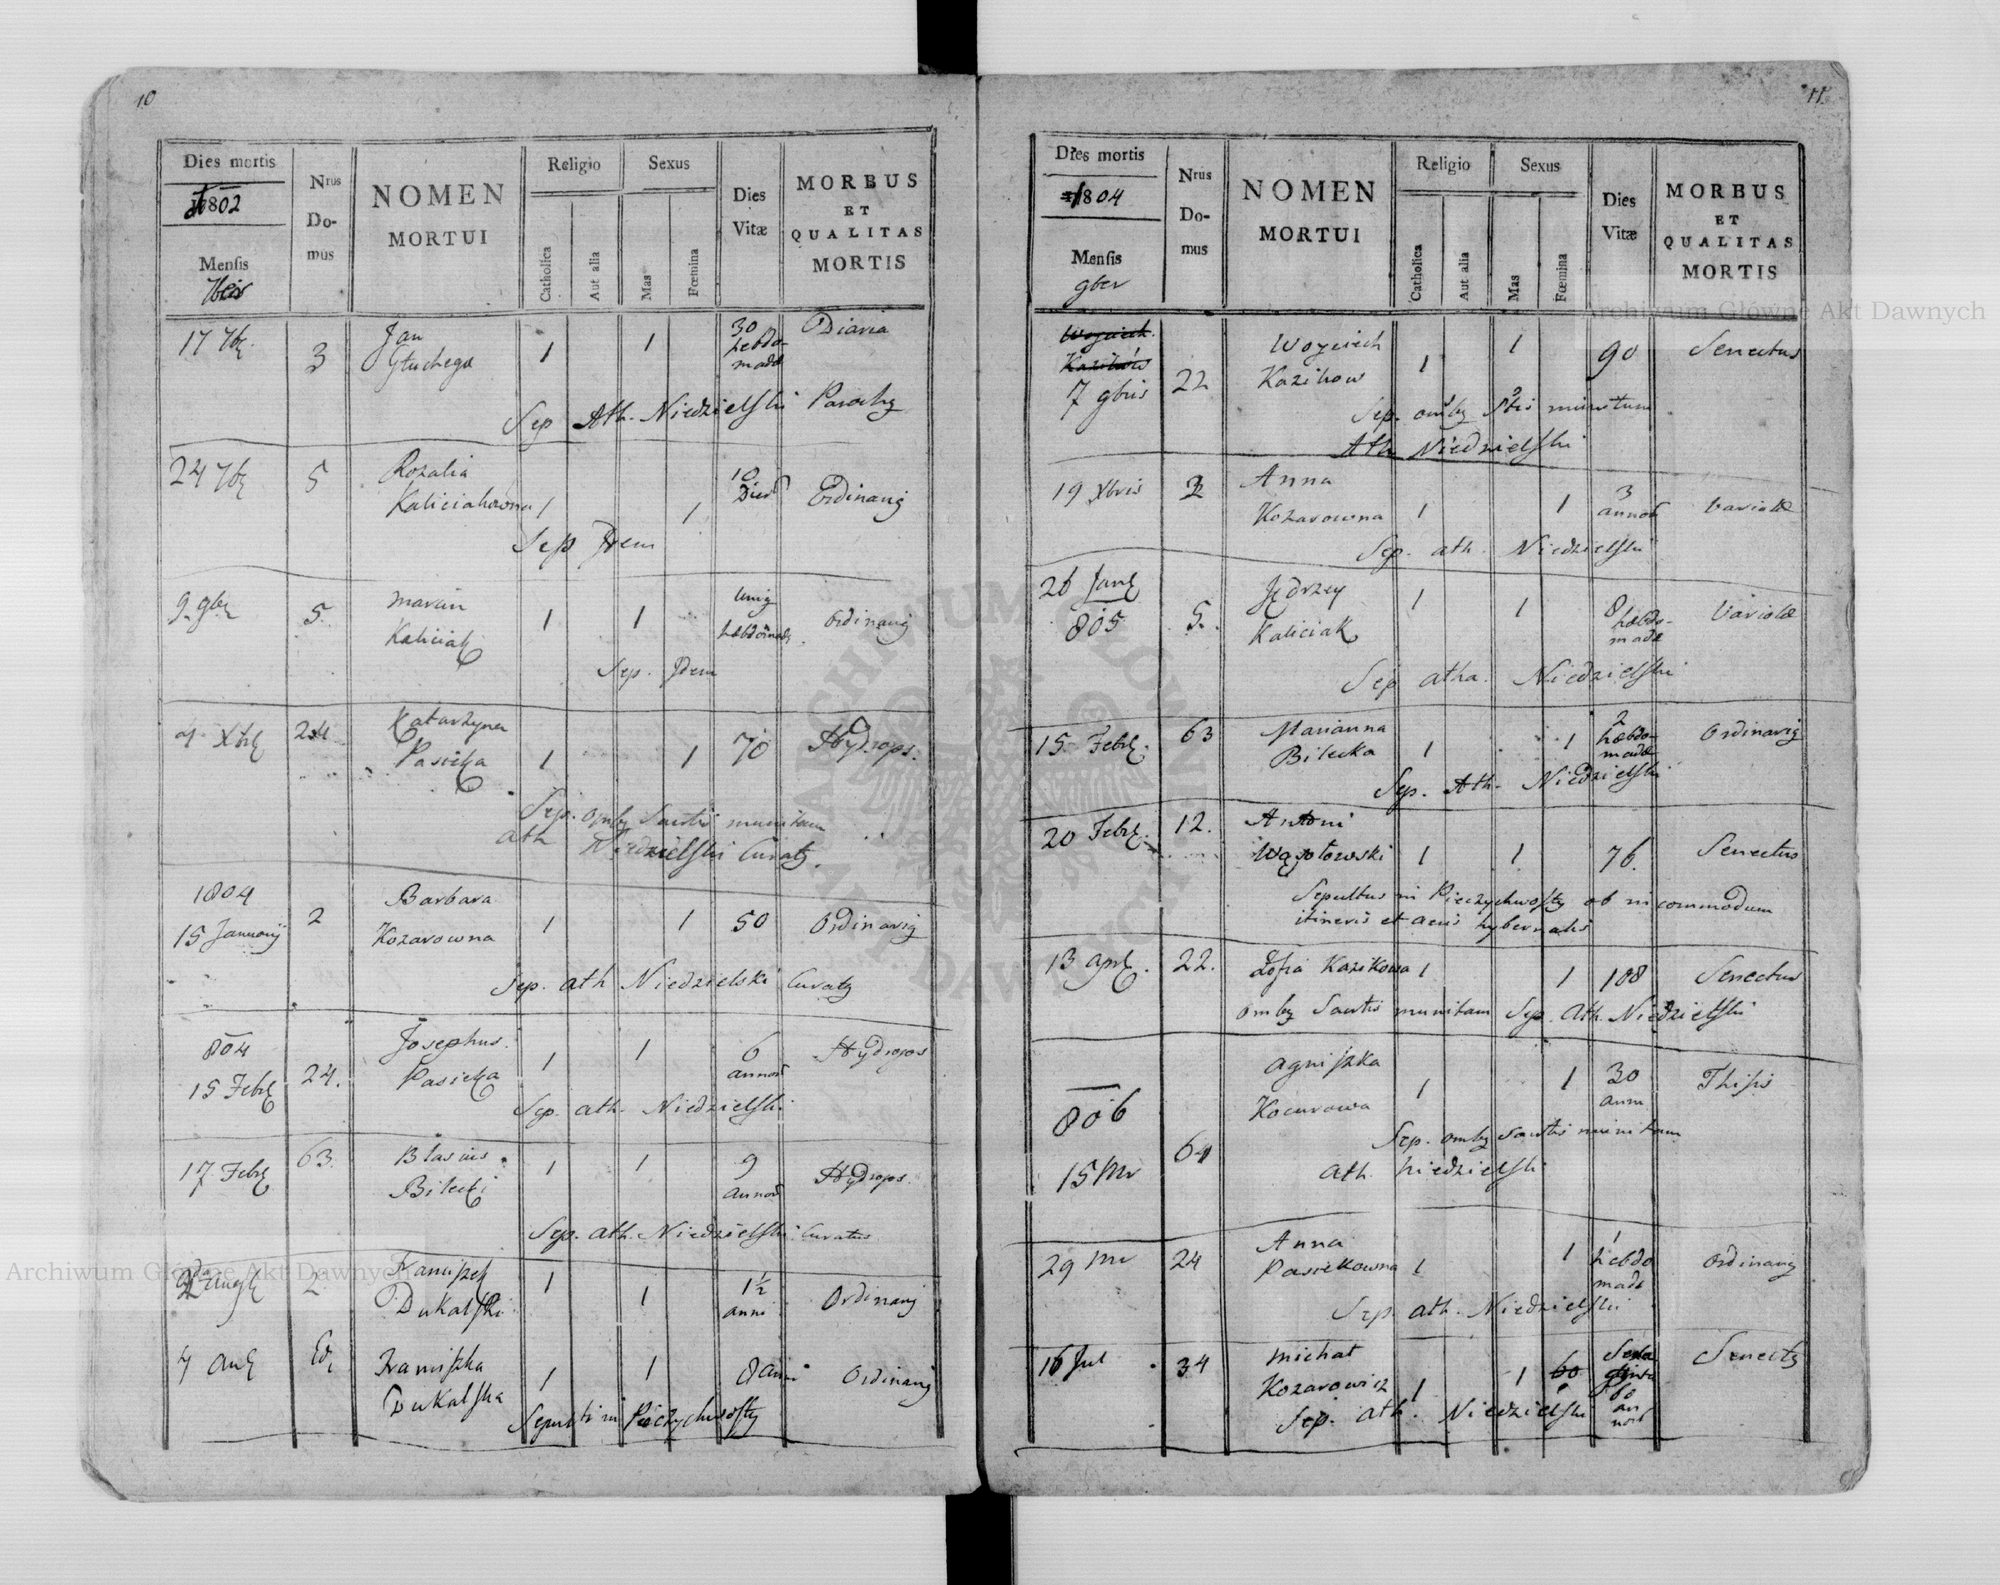 10
Dies mortis
1802
Mensis
7bris
Nrus Do-mus
NOMEN
MORTUI
Religio
Catholica
Aut alia
Sexus
Mas
Fœmina
Dies
Vitæ
MORBUS
ET
QUALITAS
MORTIS
17 7br
3
Jan
Głuchego
1
1
30
hebdo-
madæ
Diaria
Sep Ath. Niedzielski Parochy
24 7br
5
Rozalia
Kaliciakowna
1
1
10
Dier
Ordinariy
Sep Idem
9 9br
5
Marcin
Kaliciak
1
1
hebdomade
Ordinariy
Sep. Idem
Xbr
24
Katarzyna
Pasicka
1
1
70
Hydrops.
Sep. omby Sactis munitam
Ath Niedzielski Curaty.
1804
15 Januariy
2
Barbara
Kozarowna
1
1
50
Ordinariy
Sep. Ath Niedzielski Curaty
804
15 Febr
24.
Josephus
Pasicka
1
1
6
annor
Hydrops
Sep. Ath. Niedzielski
17 Febr
63.
Blasius
Bilecki
1
1
9
annor
Hydrops
Sep. Ath. Niedzielski Curatus
2da Aug
2
Franciszek
Dukalski
1
1
1 1/2
anni
Ordinariy
Aug
Franciszka
Dukalska
1
1
8 anni
Ordinariy
Sepulti in Pieczychwosty
11.
Dies mortis
1804
Mensis
9ber
Nrus Do-mus
NOMEN
MORTUI
Religio
Catholica
Aut alia
Sexus
Mas
Fœmina
Dies
Vitæ
MORBUS
ET
QUALITAS
MORTIS
7 9bris
22
Woyciech
Kazikow
1
1
90
Senectus
Sep. omby Sctis munitum
Ath Niedzielski
19 Xbris
2
Anna
Kozarowna
1
1
3
annor
Variolæ
Sep. Ath. Niedzielski
26 Jan
805
5.
Jędrzey
Kaliciak
1
1
8
hebdo-
madæ
Variolæ
Sep Atha. Niedzielski
15 Febr.
63
Marianna
Bilecka
1
1
2
hebdo-
madæ
Ordinariy
Sep. Ath. Niedzielski
20 Febr.
12.
Antoni
Wąsotowski
1
1
76.
Senectus
Sepultus in Pieczychwosty ob incommodum
itineris et aeris hybernalis
13 Apr.
22.
Zofia Kazikowa
1
1
108
Senectus
omby Sactis munitam Sep. Ath. Niedzielski
806
15 Mr
64
Agniszka
Kocurowa
1
1
30
ann
Thisis
Sep. omby Sactis munitam
Ath. Niedzielski
29 Mr
24
Anna
Pasiekowna
1
1
1
hebdo
made
Ordinariy
Sep. Ath. Niedzielski
16 Jul
34
Michał
Kozarowicz
1
1
60
annor
Senecty
Sep. Ath. Niedzielski
Archiwum Główne Akt Dawnych
Archiwum Główne Akt Dawnych
ARCHIWUM GŁÓWNE AKT DAWNYCH